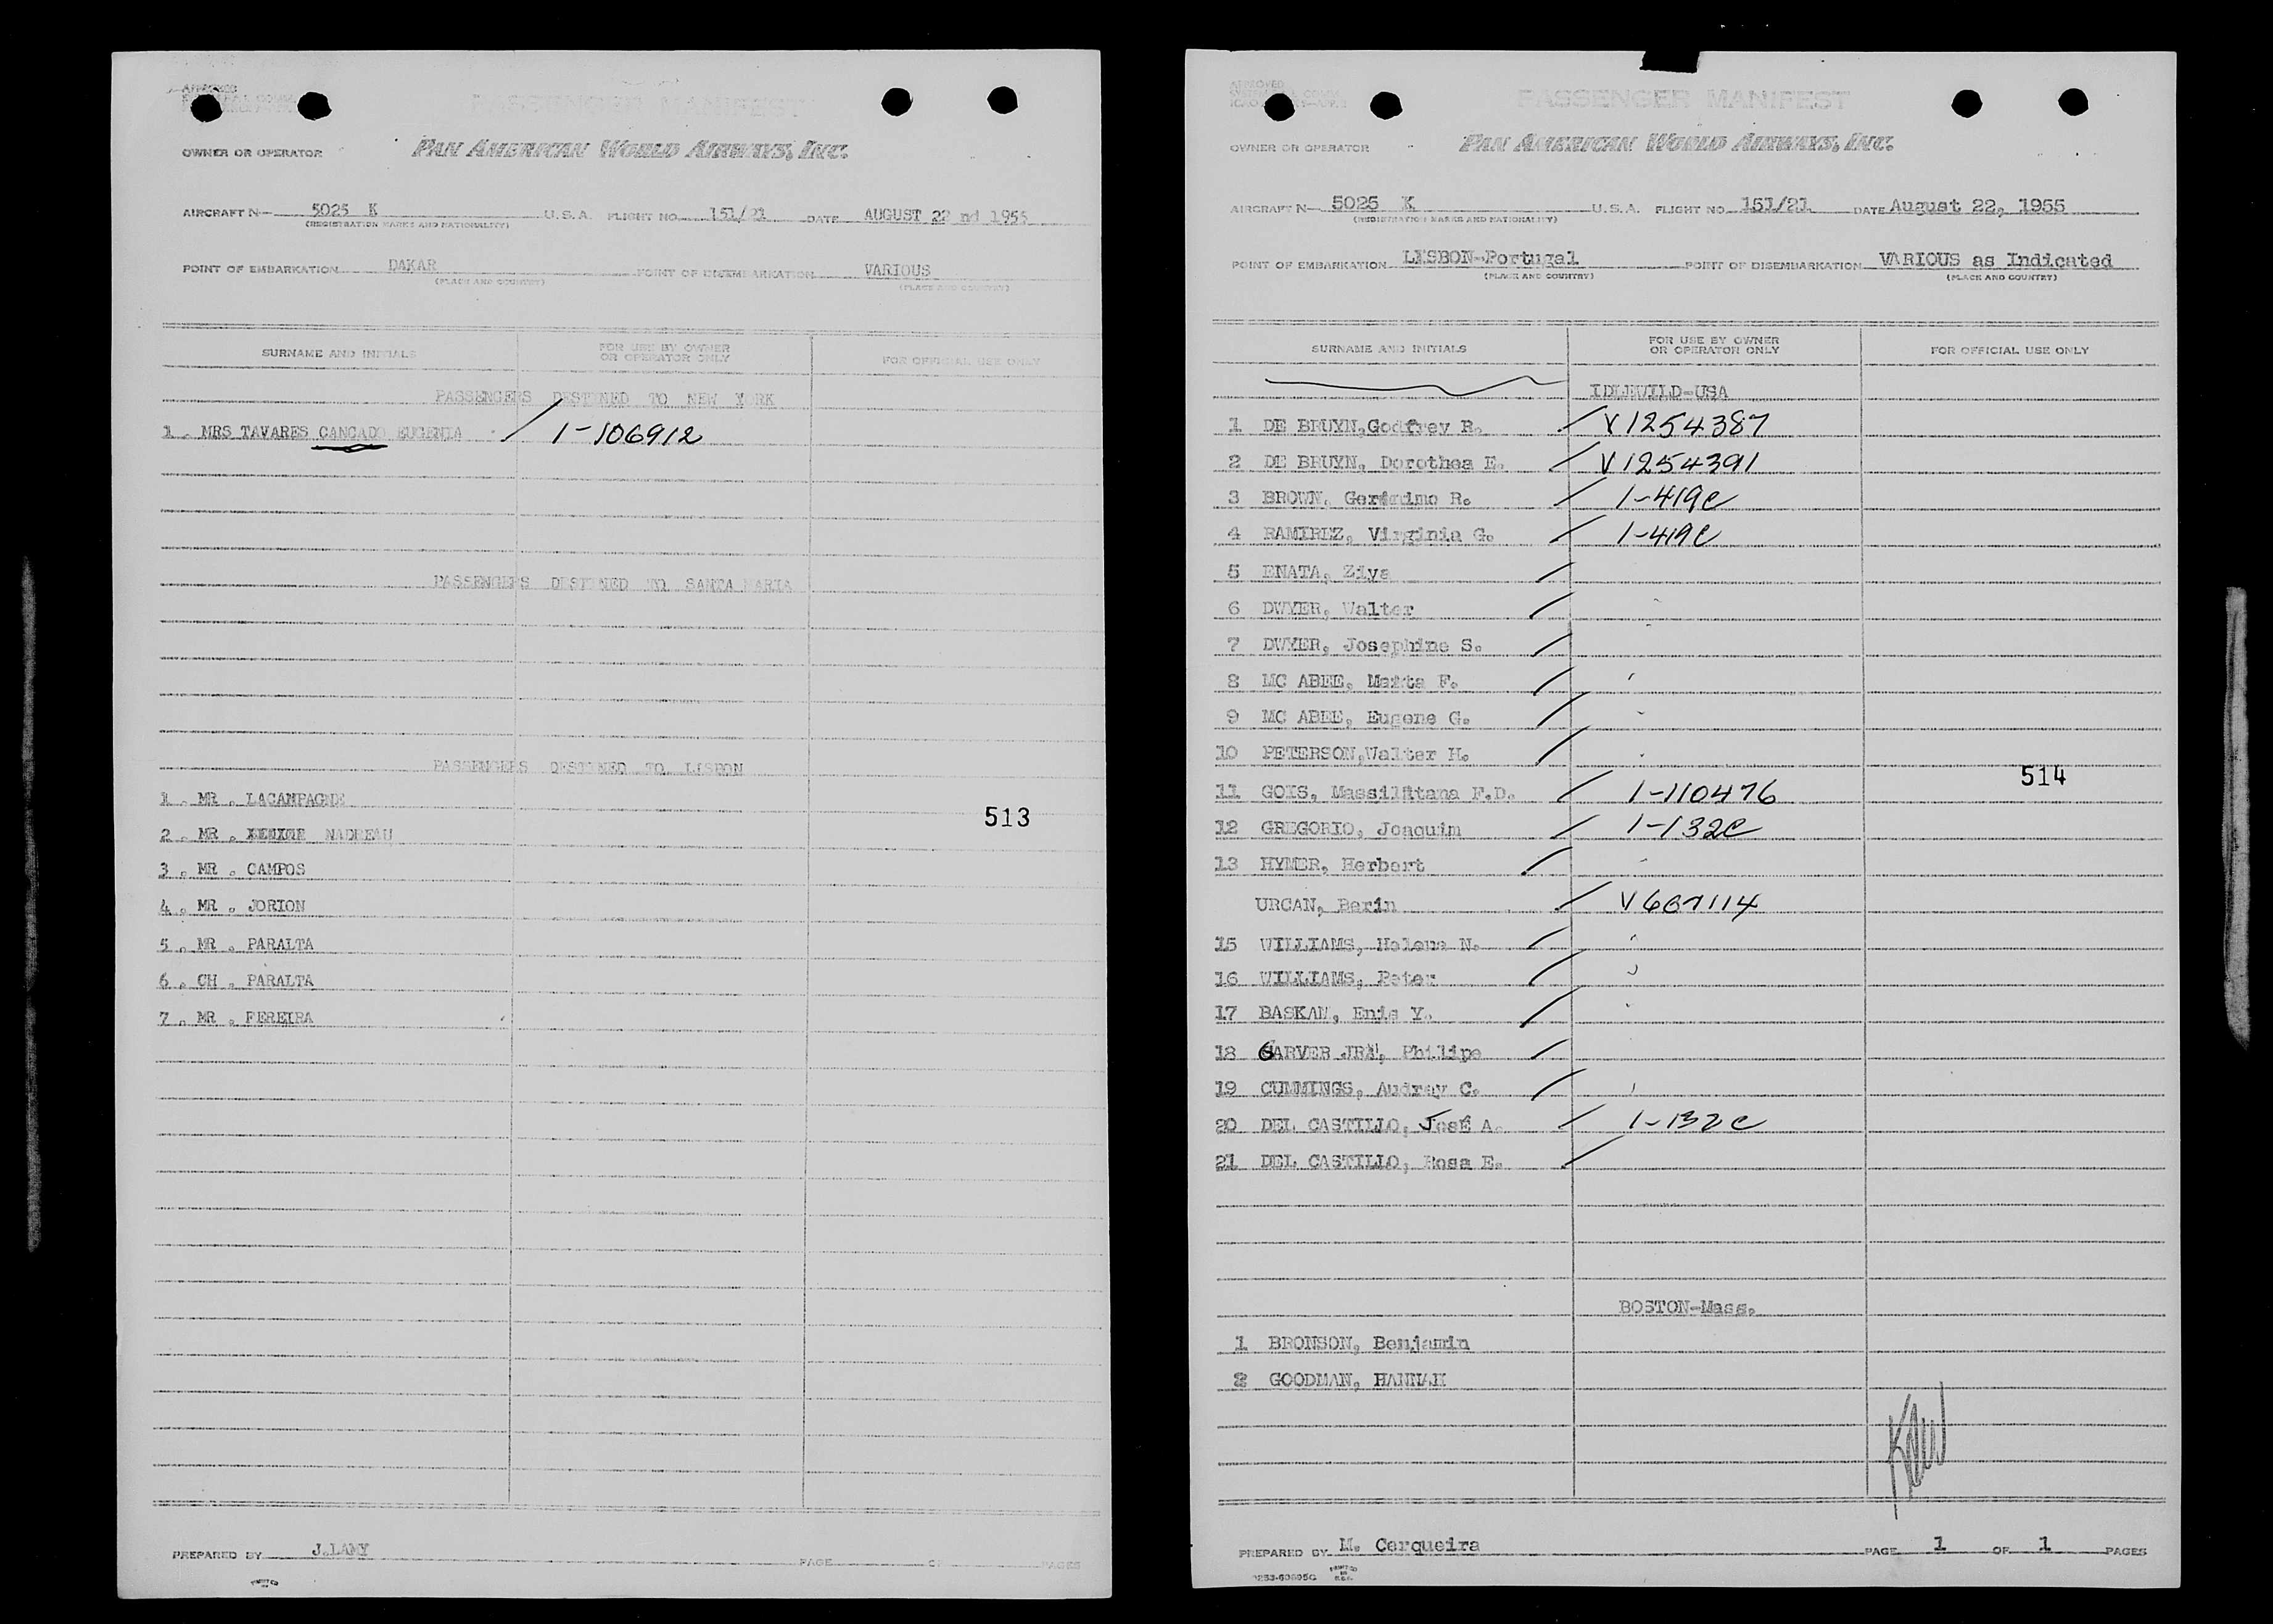 PASSENGER MANIFEST
OWNER OR OPERATOR PAN AMERICAN WORLD AIRWAYS, INC.
AIRCRAFT N- 5025 K U.S.A. FLIGHT NO. 151/21 DATE AUGUST 22 nd 1955
(REGISTRATION MARKS AND NATIONALITY)
POINT OF EMBARKATION DAKAR POINT OF DISEMBARKATION VARIOUS
(PLACE AND COUNTRY) (PLACE AND COUNTRY)
SURNAME AND INITIALS FOR USE BY OWNER OR OPERATOR ONLY FOR OFFICIAL USE ONLY
PASSENGERS DESTINED TO NEW YORK
1 . MRS TAVARES CANCADO EUGENIA / 1-106912
PASSENGERS DESTINED TO SANTA MARIA
PASSENGERS DESTINED TO LISBON
1 . MR . LACAMPAGNE
513
2 . MR . NADREAU
3 . MR . CAMPOS
4 . MR . JORION
5 . MR . PARALTA
6 . CH . PARALTA
7 . MR . FEREIRA
PREPARED BY J.LAMY PAGE OF PAGES
APPROVED
PASSENGER MANIFEST
OWNER OR OPERATOR PAN AMERICAN WORLD AIRWAYS, INC.
AIRCRAFT N- 5025 K U.S.A. FLIGHT NO. 151/21 DATE August 22, 1955
(REGISTRATION MARKS AND NATIONALITY)
POINT OF EMBARKATION LISBON-Portugal POINT OF DISEMBARKATION VARIOUS as Indicated
(PLACE AND COUNTRY) (PLACE AND COUNTRY)
SURNAME AND INITIALS FOR USE BY OWNER OR OPERATOR ONLY FOR OFFICIAL USE ONLY
IDLEWILD-USA
1 DE BRUYN,Godfrey R. / V1254387
2 DE BRUYN, Dorothea E. / V1254391
3 BROWN, R. / 1-419c
4 RAMIREZ, Virginia G. / 1-419c
5 ENATA, Ziya /
6 DWYER, Walter /
7 DWYER, Josephine S. /
8 MC ABEE, F. /
9 MC ABEE, Eugene G. /
10 PETERSON,Walter H. /
514
11 GOIS, F.D. / 1-110476
12 GREGORIO, Joaquim / 1-132c
13 HYMER, Herbert /
URCAN, Barin / V667114
15 WILLIAMS, Helene N. /
16 WILLIAMS, Peter /
17 BASKAN, Enis Y. /
18 GARVER Philipe /
19 CUMMINGS, Audrey C. /
20 DEL CASTILLO, José A. / 1-132c
21 DEL CASTILLO, Rosa E. /
BOSTON-Mass.
1 BRONSON, Benjamin
2 GOODMAN, HANNAH
PREPARED BY M. Cerqueira PAGE 1 OF 1 PAGES
PRINTED IN U.S.A.